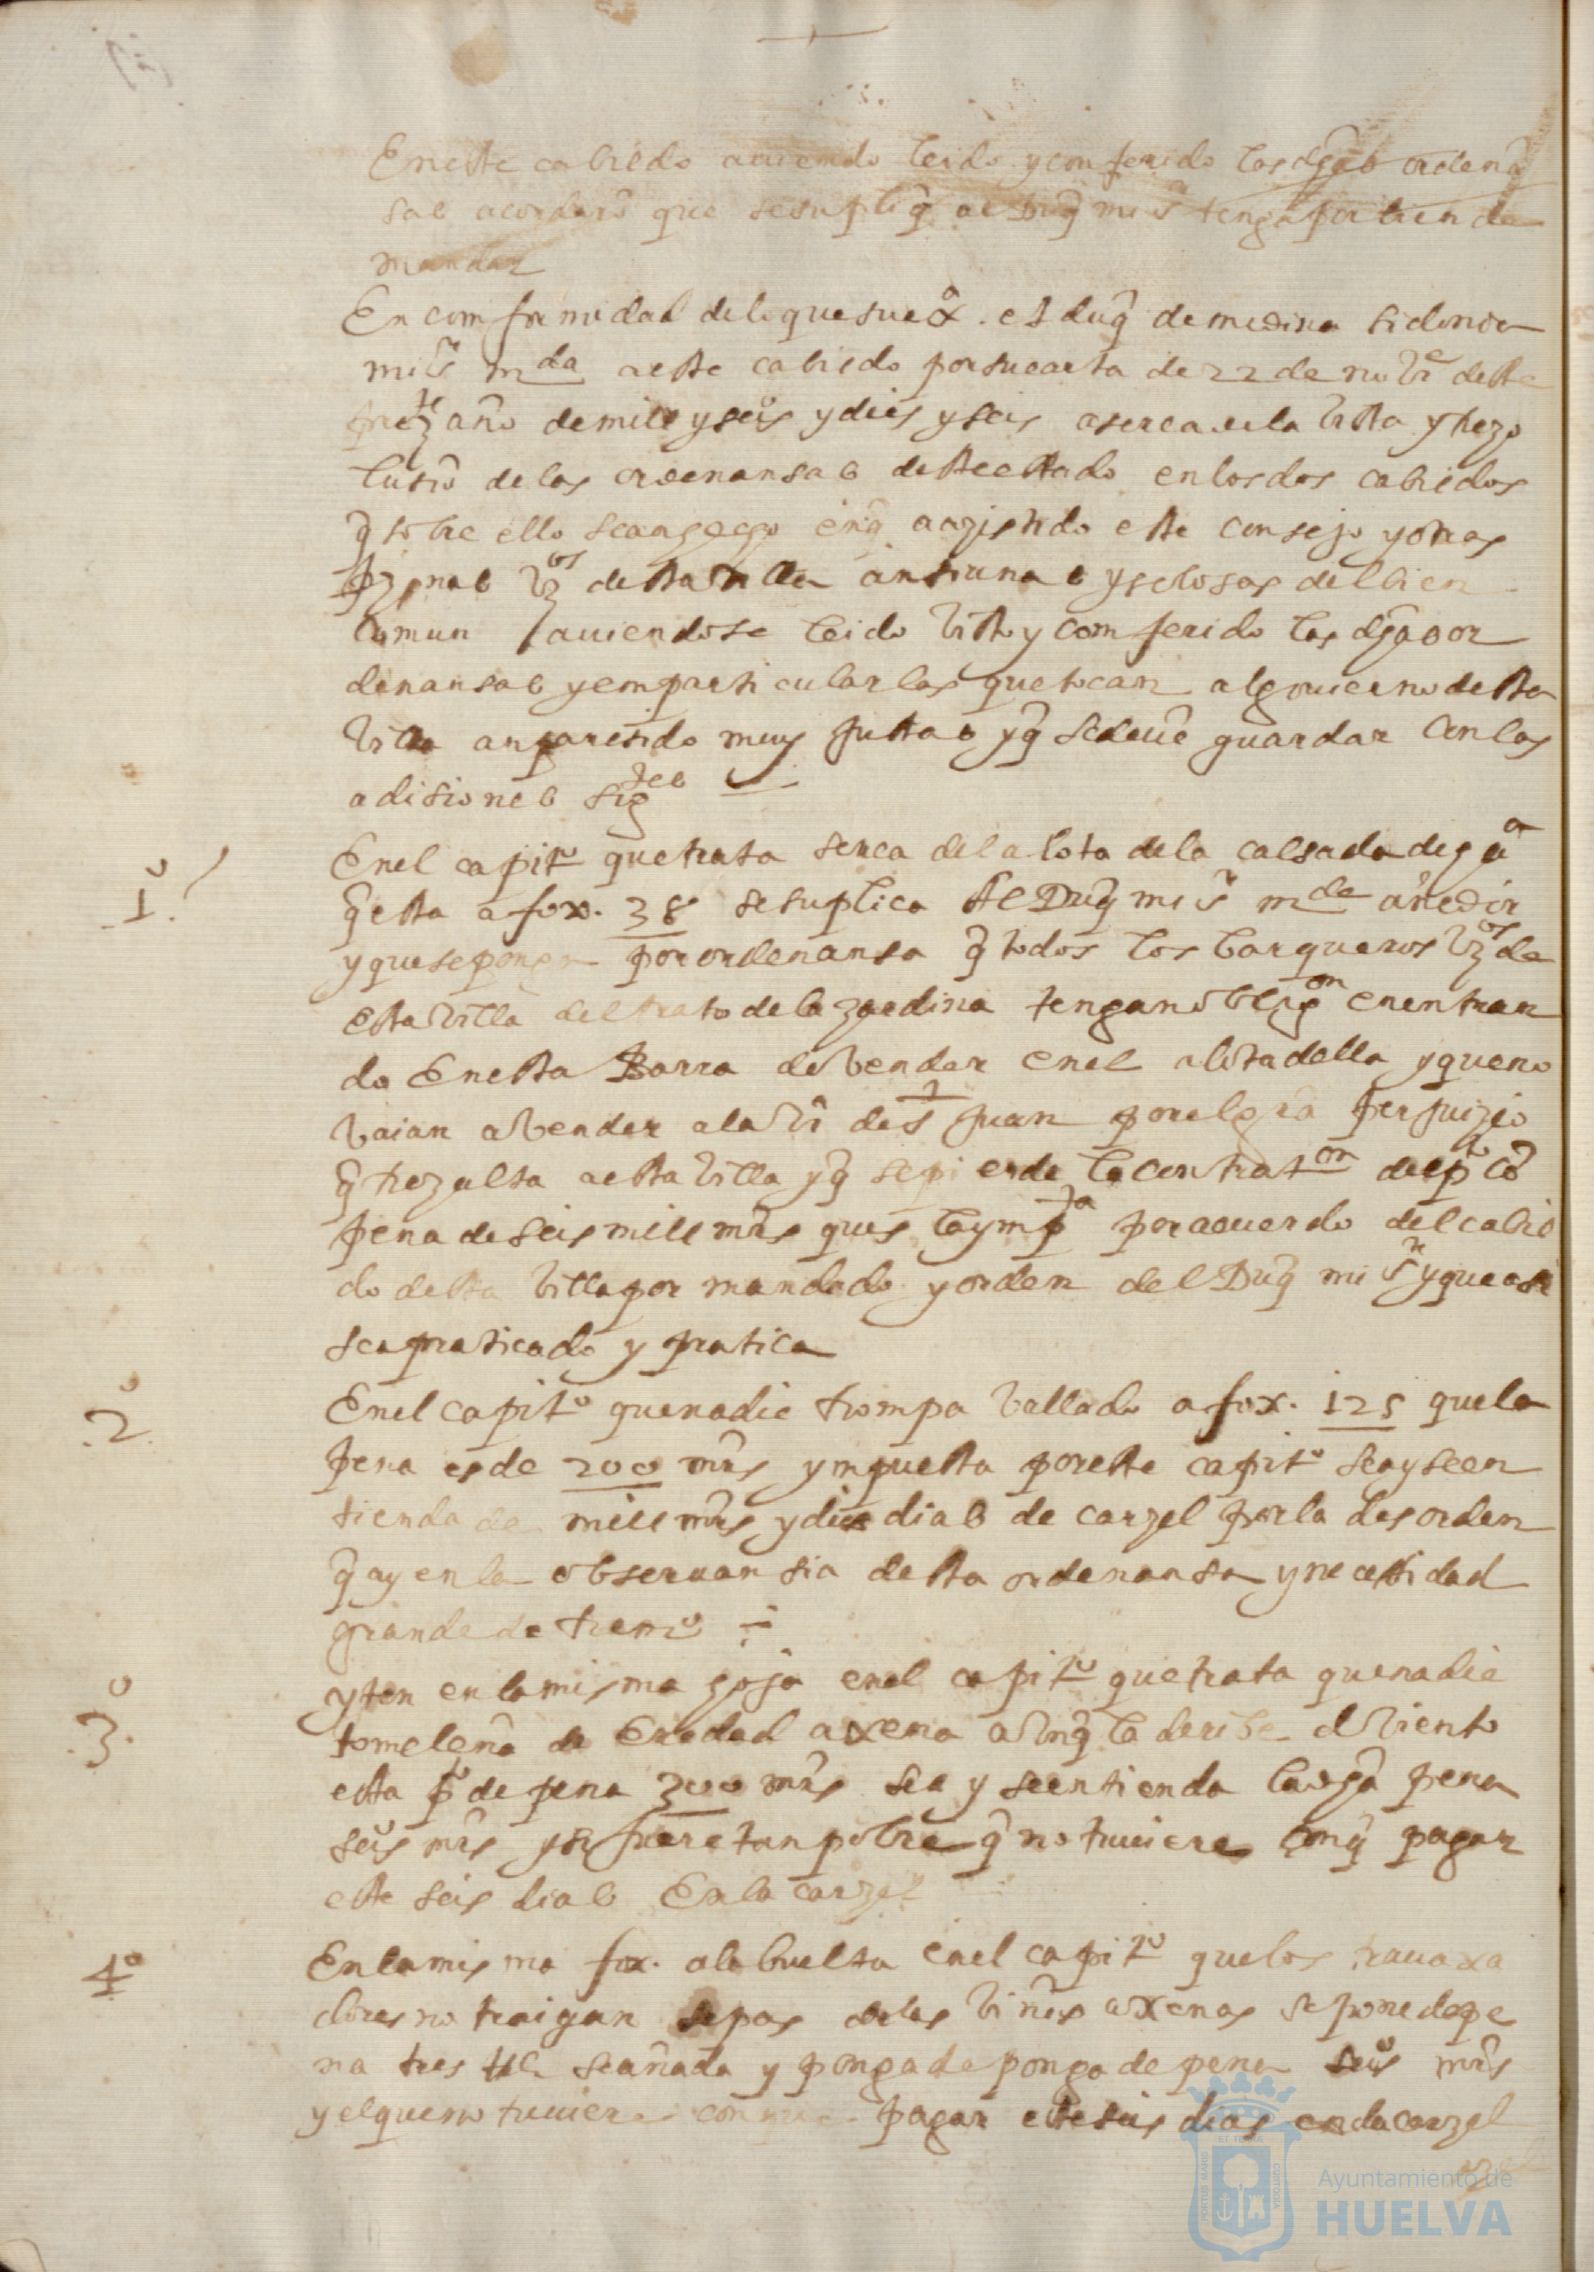 En este cabildo auiendo leido y comferido las dhas ordenã
sas acordarõ que se supliq̃ al Duq̃ mi s.r tenga por bien de
mandar
En comformidad de lo que su ex.a el duq̃ de medina sidonia
mi s.r m.da a este cabildo por su carta de 22 de nobre deste
preze.te año de mill y seis.os y dies y seis aserca de la bista y rezo
lusiõ de las ordenansas deste estado en los dos cabildos
q̃ sobre ello se an en q̃ a azistido este consejo y otras
pzonas bz.os desta villa ansianas y selosas del bien
comun / auiendose leido bisto y comferido las dhas or
denansas y em particular las que tocan al gouierno desta
billa an paresido muy justas y q̃ se deuẽ guardar con las
adisiones sig.tes
1.o
En el capit.o que trata serca del alota de la calsada
q̃ esta a fox. 38 se suplica al Duq̃ mi s.r m.de añedir
y que se ponga por ordenansa q̃ todos los barqueros bz.os de
esta billa del trato de la zardina tengan oblig.on en entran
do en esta Barra de bender en el alota della y que no
baian a bender a la de s. Juan por el grã perjuizio
q̃ rezulta a esta billa y q̃ se pierde la contrat.on del
pena de seis mill mrs ques la ymp.ta por acuerdo del cabil
do desta billa por mandado y orden del Duq̃ mi s.r y que asi
se a praticado y pratica
2.o
En el capit.o que nadie rompa ballado a fox. 125 que la
pena es de 200 mrs ympuesta por este capit.o sea y se en
tienda de mill mrs y dies dias de carzel por la desorden
q̃ ay en la obseruansia desta ordenansa y nesesidad
grande de remº
3.o
yten en la misma foja en el capit.o que trata que nadie
tome leña de eredad axena aunq̃ la deribe el biento
esta p.to de pena 300 mrs sea y se entienda la dha pena
seis.os mrs y si fuere tan pobre q̃ no tuuiere con q̃ pagar
este seis dias en la carzel
4.o
En la misma fox. a la buelta en el capit.o que los trauaxa
dores no traigan sepas de las biñas axenas se pone de pe
na tres rls se añada y ponga de ponga de pena seis.os mrs
y el que no tuuiere con que pagar este seis dias en la carzel
Ayuntamiento de
HUELVA